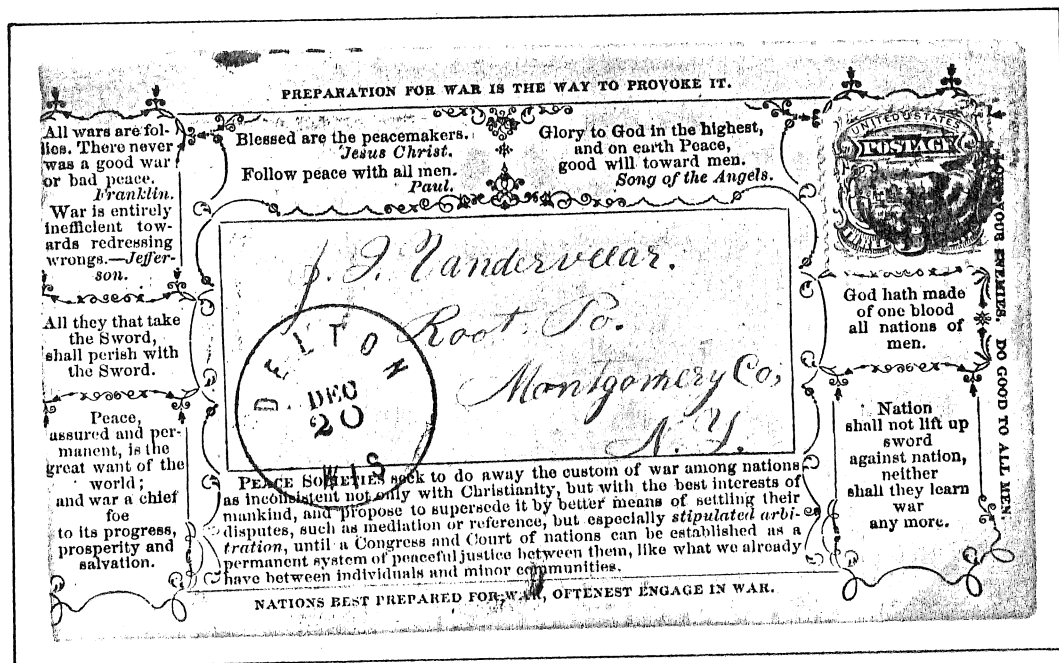 PREPARATION FOR WAR IS THE WAY TO PROVOKE IT.
All wars are fol-
lies. There never
was a good war
or bad peace.
Franklin.
War is entirely
inefficient tow-
ards redressing
wrongs.—Jeffer-
son.
All they that take
the Sword,
shall perish with
the Sword.
Peace,
assured and per-
manent, is the
great want of the
world;
and war a chief
foe
to its progress,
prosperity and
salvation.
Blessed are the peacemakers.
Jesus Christ.
Follow peace with all men.
Paul.
Glory to God in the highest,
and on earth Peace,
good will toward men.
Song of the Angels.
UNITED STATES
POSTAGE
J. I. Vanderveear.
Root. Po.
Montgomery Co,
N. Y.
DELTON
DEC
20
WIS
PEACE SOCIETIES seek to do away the custom of war among nations
as inconsistent not only with Christianity, but with the best interests of
mankind, and propose to supersede it by better means of settling their
disputes, such as mediation or reference, but especially stipulated arbi-
tration, until a Congress and Court of nations can be established as a
permanent system of peaceful justice between them, like what we already
have between individuals and minor communities.
God hath made
of one blood
all nations of
men.
Nation
shall not lift up
sword
against nation,
neither
shall they learn
war
any more.
YOUR ENEMIES. DO GOOD TO ALL MEN.
NATIONS BEST PREPARED FOR WAR, OFTENEST ENGAGE IN WAR.